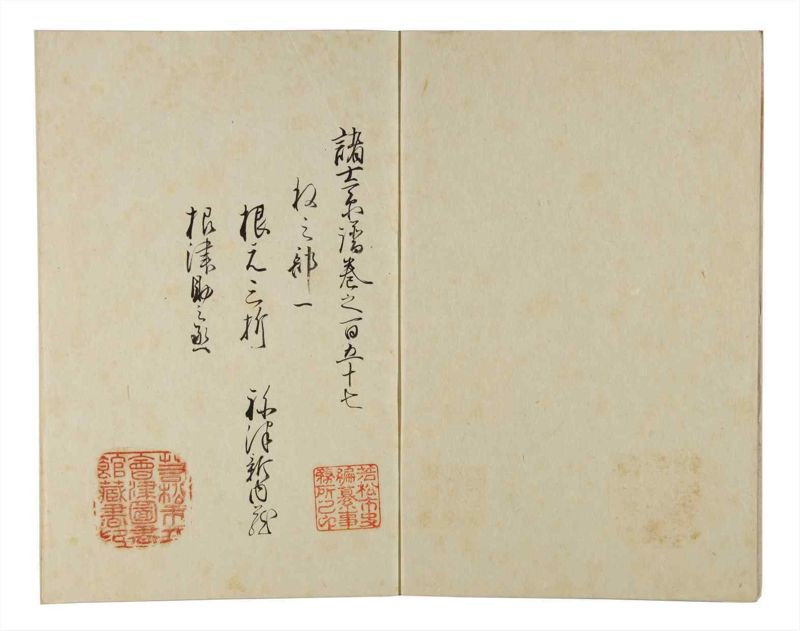 諸士系譜巻之百五十七
祢之部一
根元三折　祢津新内蔵
根津助之丞
若松市史
編纂事
務所之印
若松市立
會津圖書
館藏書印